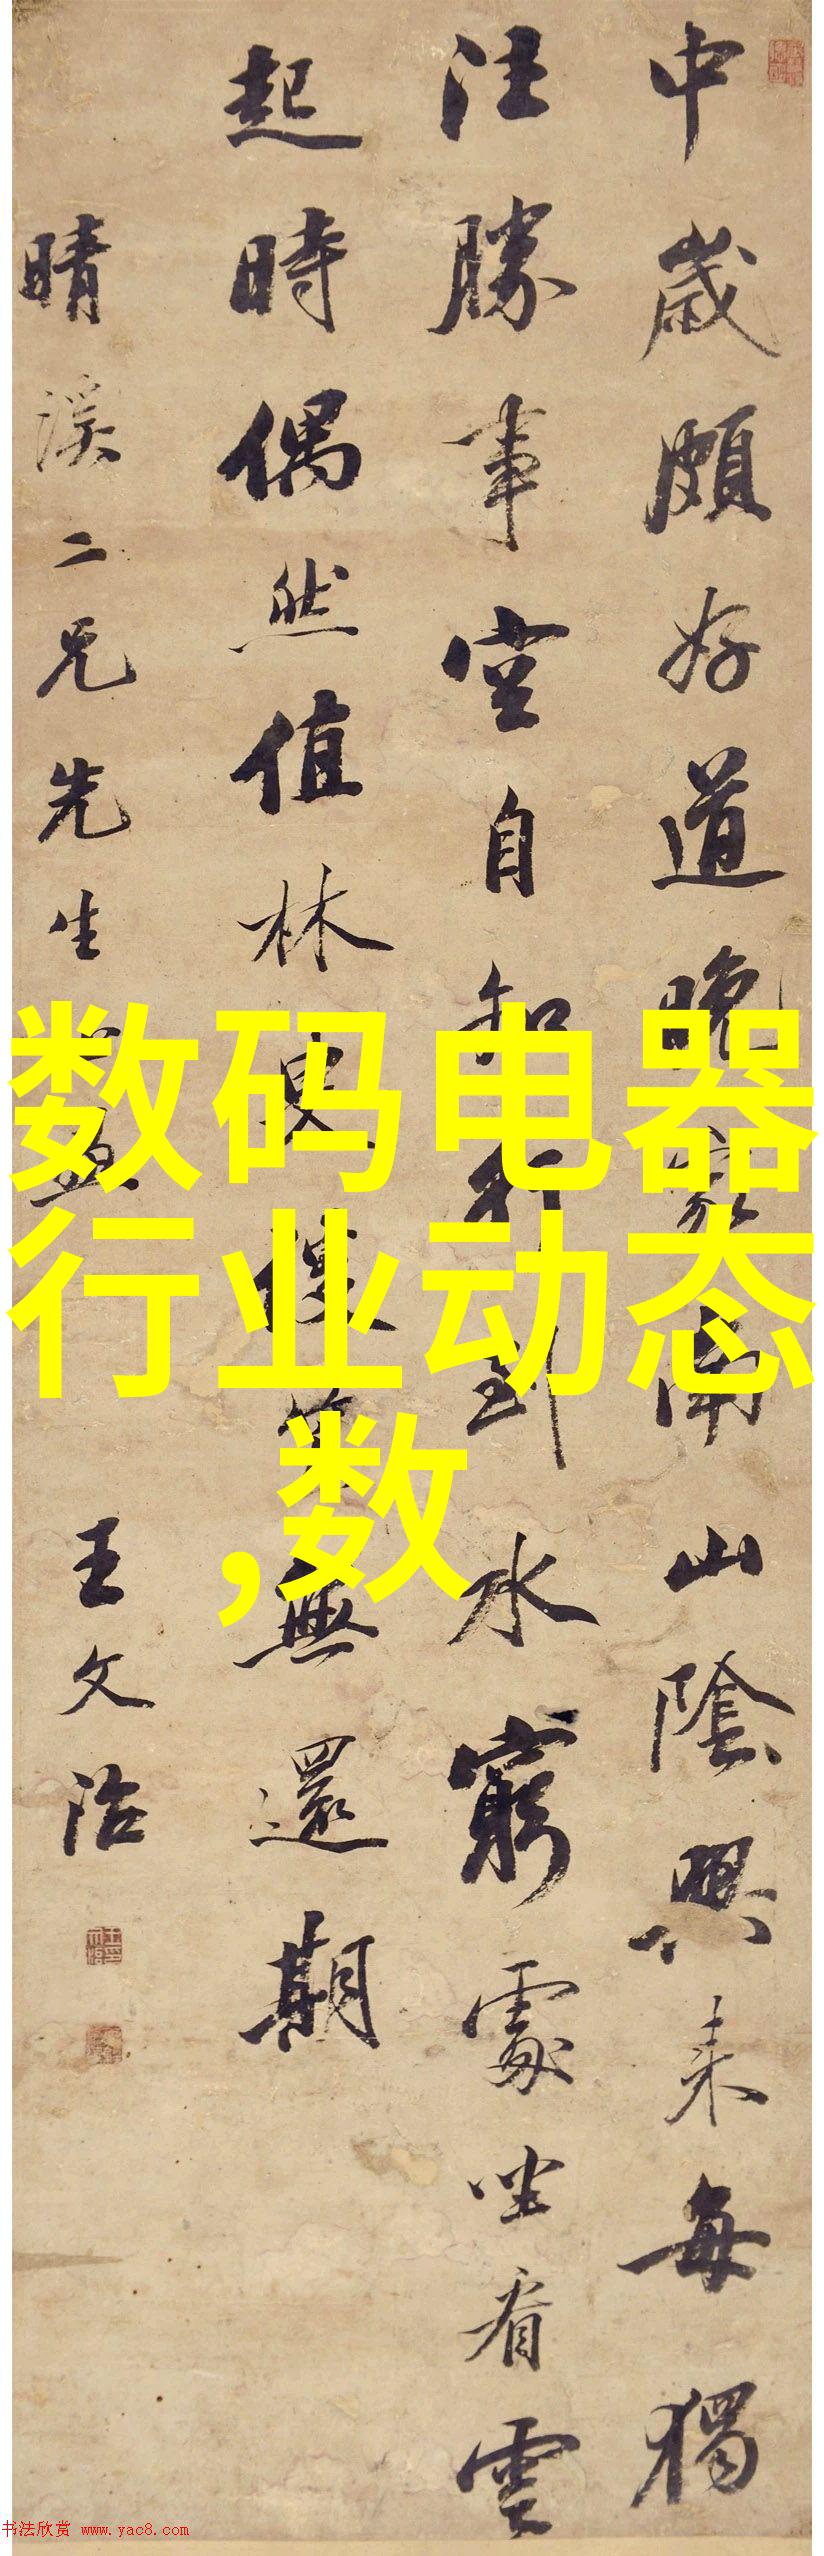 中歲頗好道晚家南山陰興来每獨
往勝事空自知行到水窮處坐看雲
起時偶然值林叟笑無還期
晴溪二兄先生
王文治
数码电器
行业动态
,数
书法欣赏 www.yac8.com